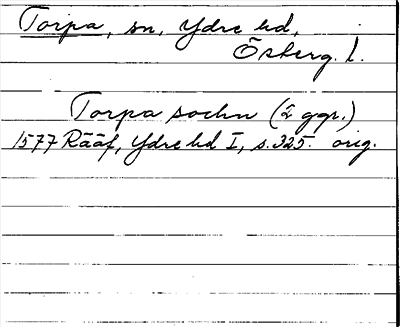 Torpa, sn, Ydre hd,
Östberg. l.
Torpa sochn (2 ggr.)
1577 Rääf, Ydre hd I, s. 325. orig.